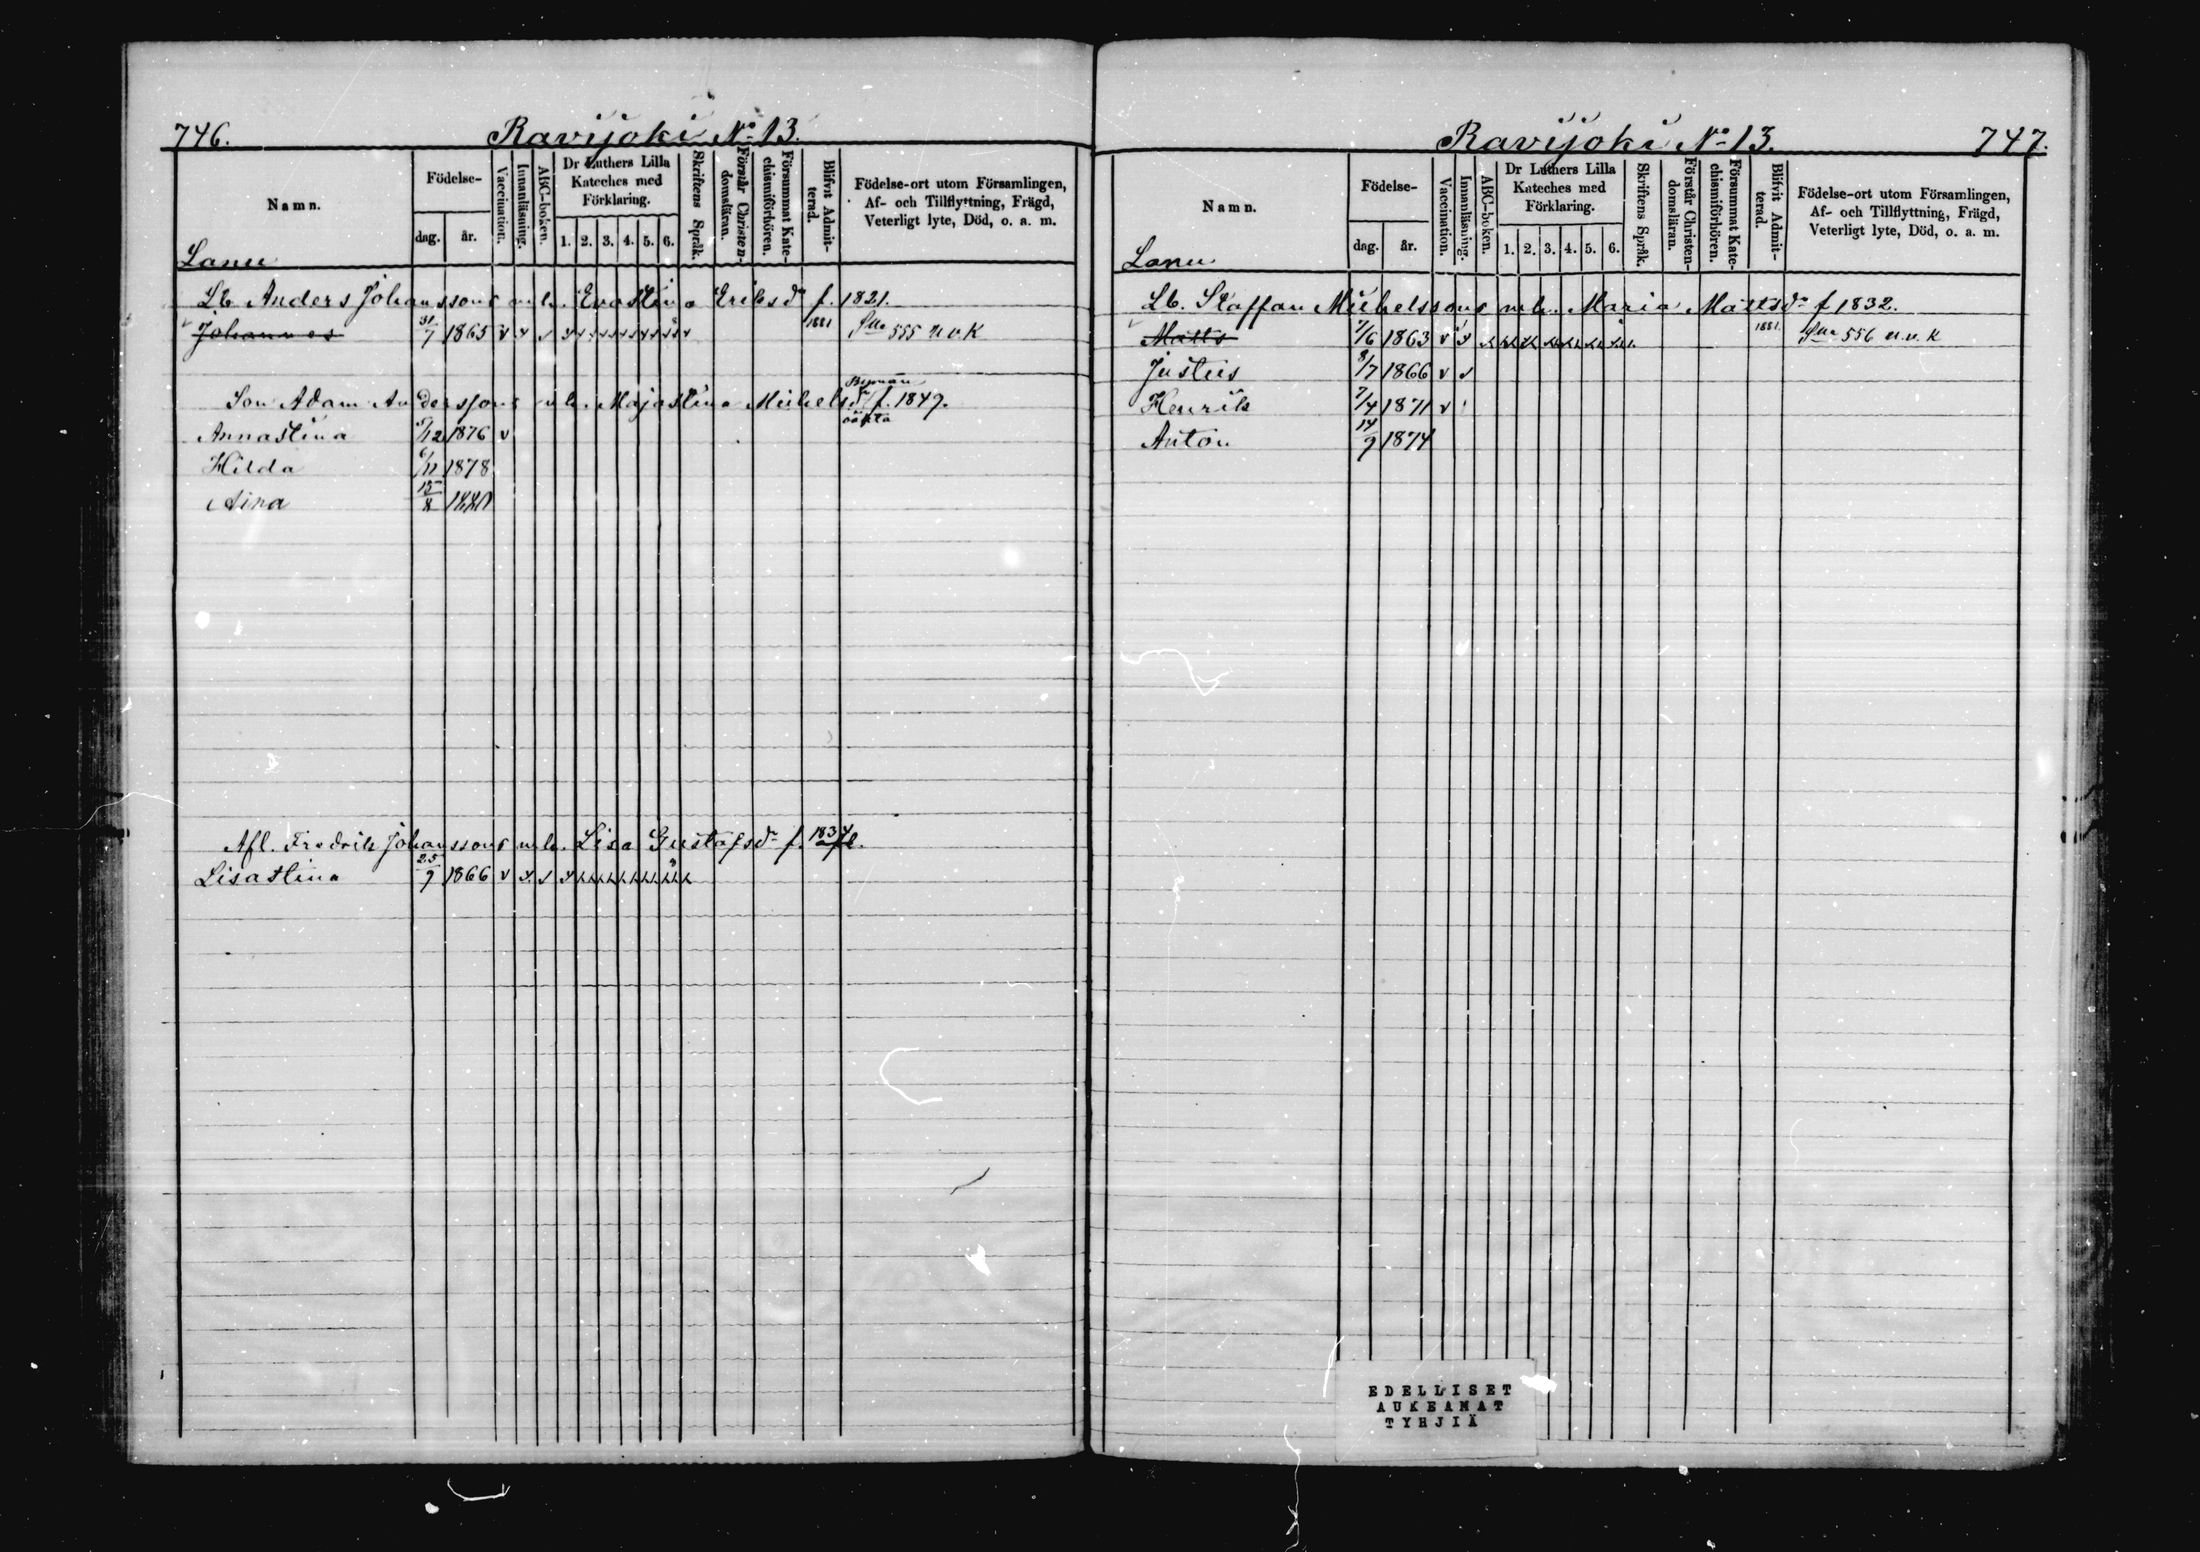 746.
Ravijoki No 13.
Namn.
Födelse-
dag.
år.
Vaccination.
Innanläsning.
ABC-boken.
Dr Luthers Lilla
Kateches med
Förklaring.
1. 2. 3. 4. 5. 6.
Skriftens Språk.
Förstår Christen-
domsläran.
Försummat Kate-
chismiförhören.
Blifvit Admit-
terad.
Födelse-ort utom Församlingen,
Af- och Tillflyttning, Frägd,
Veterligt lyte, Död, o. a. m.
Lanu
Lb. Anders Johanssons m h. Evastina Eriksdr f. 1821.
Johannes 31/7 1865 v 1881 555 u.v.K
Son Adam Anderssons m h. Majastina Michelsdr f. 1849.
Annastina 1876 v
Hilda 6/11 1878
Aina 15/8 1880
Afl. Fredrik Johanssons m h. Lisa Gustafsdr f. 1834
Lisastina 25/9 1866 v
Ravijoki No 13.
747.
Namn.
Födelse-
dag.
år.
Vaccination.
Innanläsning.
ABC-boken.
Dr Luthers Lilla
Kateches med
Förklaring.
1. 2. 3. 4. 5. 6.
Skriftens Språk.
Förstår Christen-
domsläran.
Försummat Kate-
chismiförhören.
Blifvit Admit-
terad.
Födelse-ort utom Församlingen,
Af- och Tillflyttning, Frägd,
Veterligt lyte, Död, o. a. m.
Lanu
Lb. Staffan Michelssons m h. Maria Mattsdr f 1832.
Matts 7/6 1863 v 1881. 556 u.v.K
Justus 8/7 1866 v
Henrik 7/4 1871 v
Anton 14/9 1874
EDELLISET
AUKEAMAT
TYHJIÄ